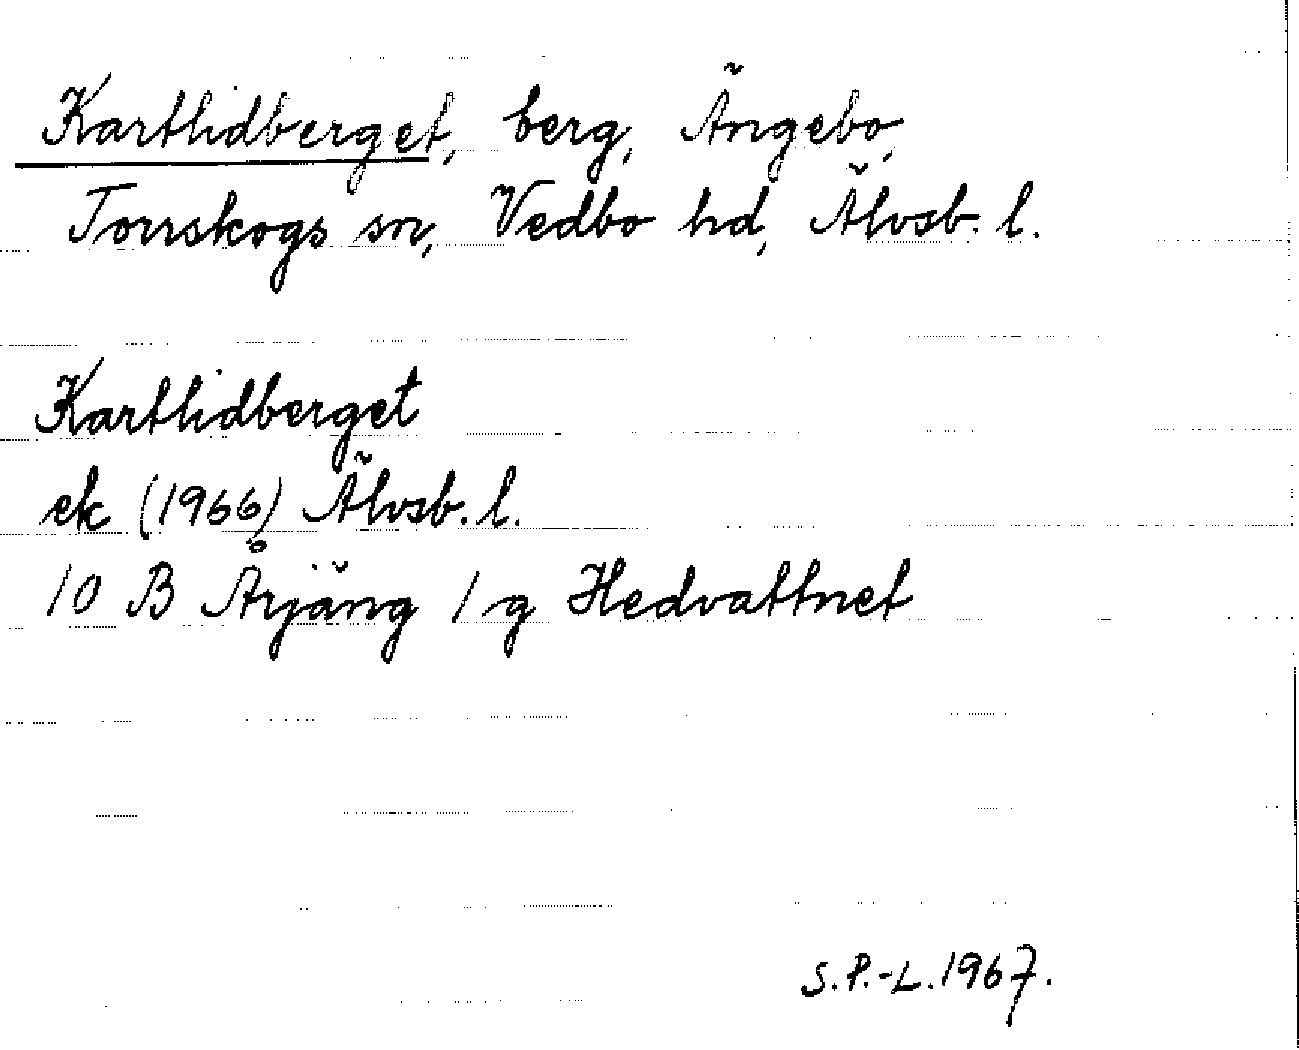 Kartlidberget, berg, Ängebo,
Torrskogs sn, Vedbo hd, Älvsb. l.
Kartlidberget
ek (1966) Älvsb. l.
10 B Årjäng 1 g Hedvattnet
S.P.-L. 1967.